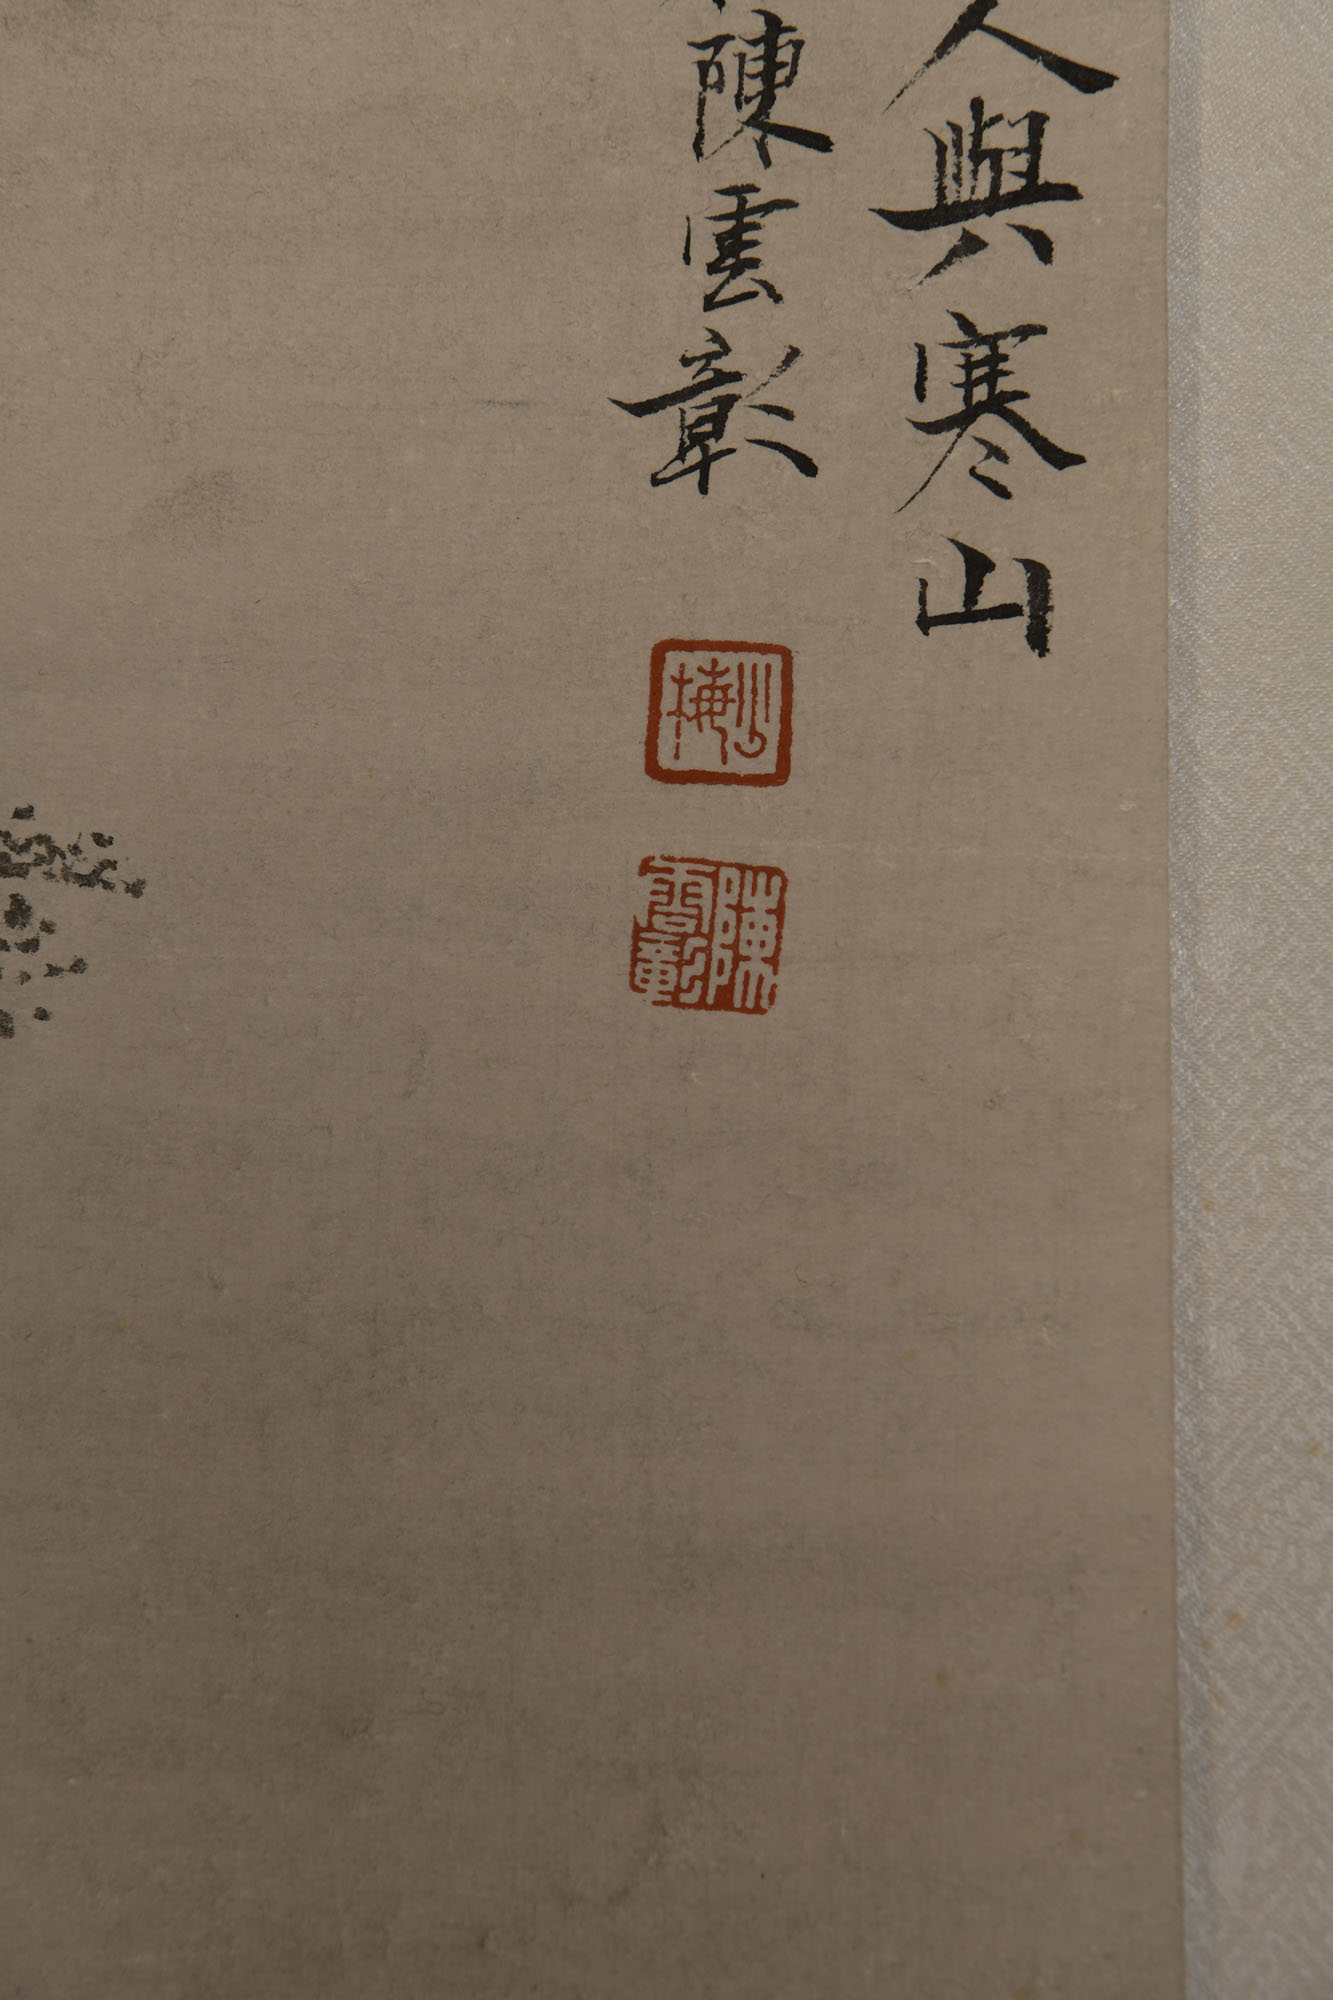 人與寒山
陳雲彰
陳雲彰